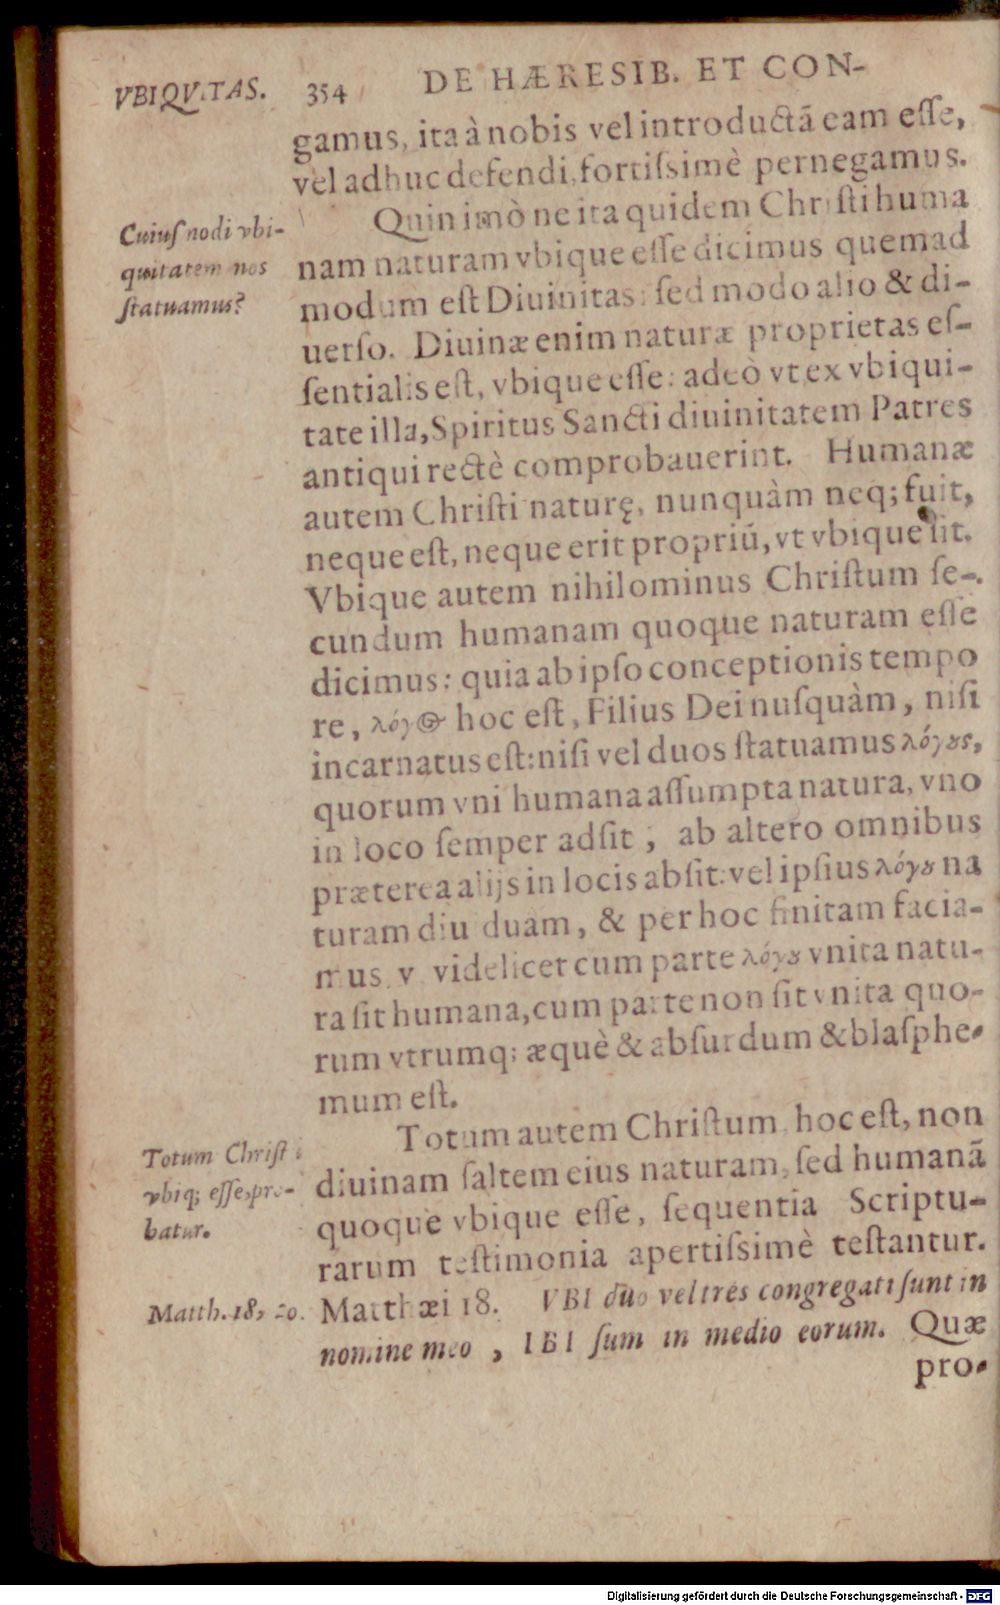 VBIQVITAS. 354 DE HÆRESIB. ET CON-
gamus, ita à nobis vel introductã eam eſſe,
vel adhuc defendi, fortiſsimè pernegamus.
Quin imò ne ita quidem Chriſti huma
Cuiuſmodi vbi-
quitatem nos
ſtatuamus?
nam naturam vbique eſſe dicimus quemad
modum eſt Diuinitas: ſed modo alio & di-
uerſo. Diuinæ enim naturæ proprietas eſ-
ſentialis eſt, vbique eſſe: adeò vt ex vbiqui-
tate illa, Spiritus Sancti diuinitatem Patres
antiqui rectè comprobauerint. Humanæ
autem Chriſti naturę, nunquàm neq; fuit,
neque eſt, neque erit propriũ, vt vbique ſit.
Vbique autem nihilominus Chriſtum ſe-
cundum humanam quoque naturam eſſe
dicimus: quia ab ipſo conceptionis tempo
re, λόγος hoc eſt, Filius Dei nuſquàm, niſi
incarnatus eſt: niſi vel duos ſtatuamus λόγȣς,
quorum vni humana aſſumpta natura, vno
in loco ſemper adſit, ab altero omnibus
præterea alijs in locis abſit: vel ipſius λόγȣ na
turam diuiduam, & per hoc finitam facia-
mus, vt videlicet cum parte λόγȣ vnita natu-
ra ſit humana, cum parte non ſit vnita quo-
rum vtrumq; æquè & abſurdum & blaſphe-
mum eſt.
Totum Chriſtũ
vbiq; eſſe, pro-
batur.
Totum autem Chriſtum, hoc eſt, non
diuinam ſaltem eius naturam, ſed humanã
quoque vbique eſſe, ſequentia Scriptu-
rarum teſtimonia apertiſsimè teſtantur.
Matth. 18, 20.
Matthæi 18. VBI duo vel tres congregati ſunt in
nomine meo, IBI ſum in medio eorum. Quæ
pro-
Digitalisierung gefördert durch die Deutsche Forschungsgemeinschaft - DFG